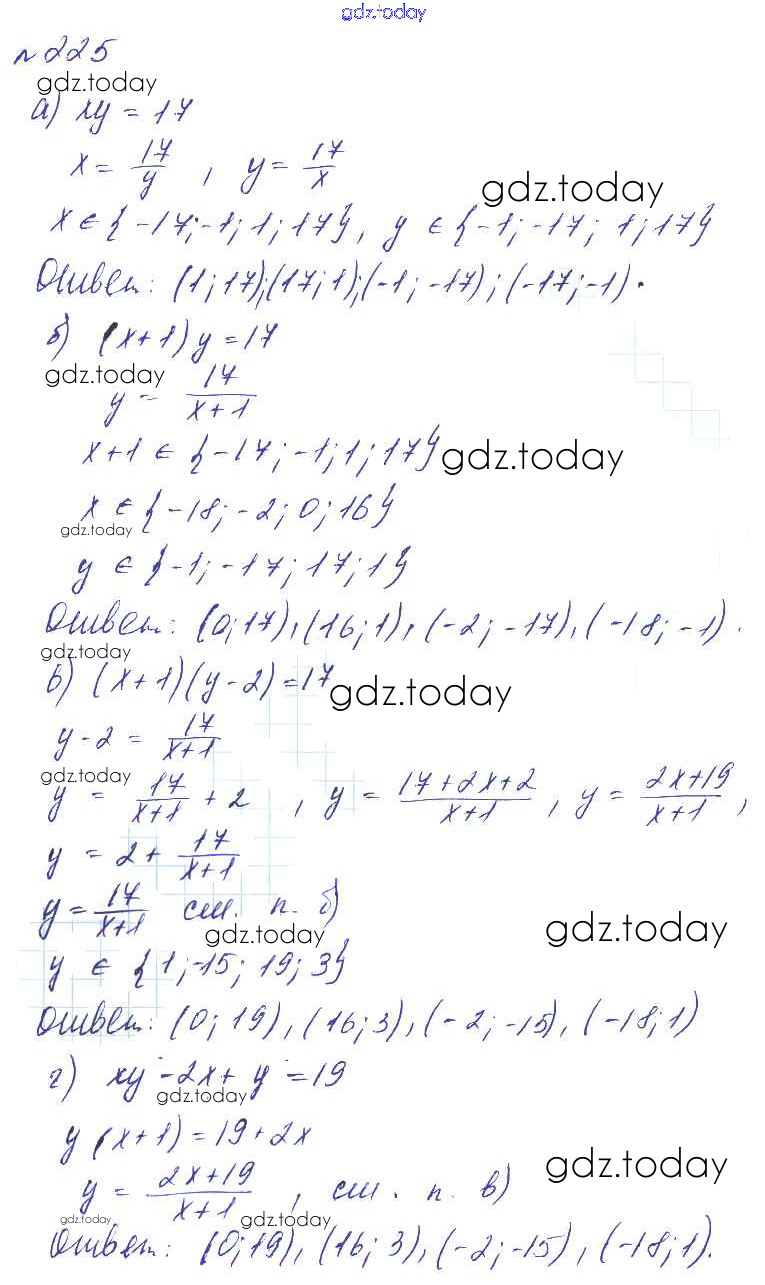 gdz.today
№225
gdz.today
а) xy = 17
x = 17/y , y = 17/x
gdz.today
x ∈ {-17; -1; 1; 17}, y ∈ {-1; -17; 1; 17}
Ответ: (1; 17); (17; 1); (-1; -17); (-17; -1).
б) (x+1) y = 17
gdz.today
y = 17/(x+1)
x+1 ∈ {-17; -1; 1; 17}
gdz.today
x ∈ {-18; -2; 0; 16}
gdz.today
y ∈ {-1; -17; 17; 1}
Ответ: (0; 17), (16; 1), (-2; -17), (-18; -1).
gdz.today
в) (x+1)(y-2) = 17
gdz.today
y-2 = 17/(x+1)
gdz.today
y = 17/(x+1) + 2 , y = (17+2x+2)/(x+1) , y = (2x+19)/(x+1) ,
y = 2 + 17/(x+1)
y = 17/(x+1) см. п. б)
gdz.today
gdz.today
y ∈ {1; -15; 19; 3}
Ответ: (0; 19), (16; 3), (-2; -15), (-18; 1)
г) xy - 2x + y = 19
gdz.today
y (x+1) = 19 + 2x
gdz.today
y = (2x+19)/(x+1) , см. п. в)
gdz.today
gdz.today
Ответ: (0; 19), (16; 3), (-2; -15), (-18; 1).